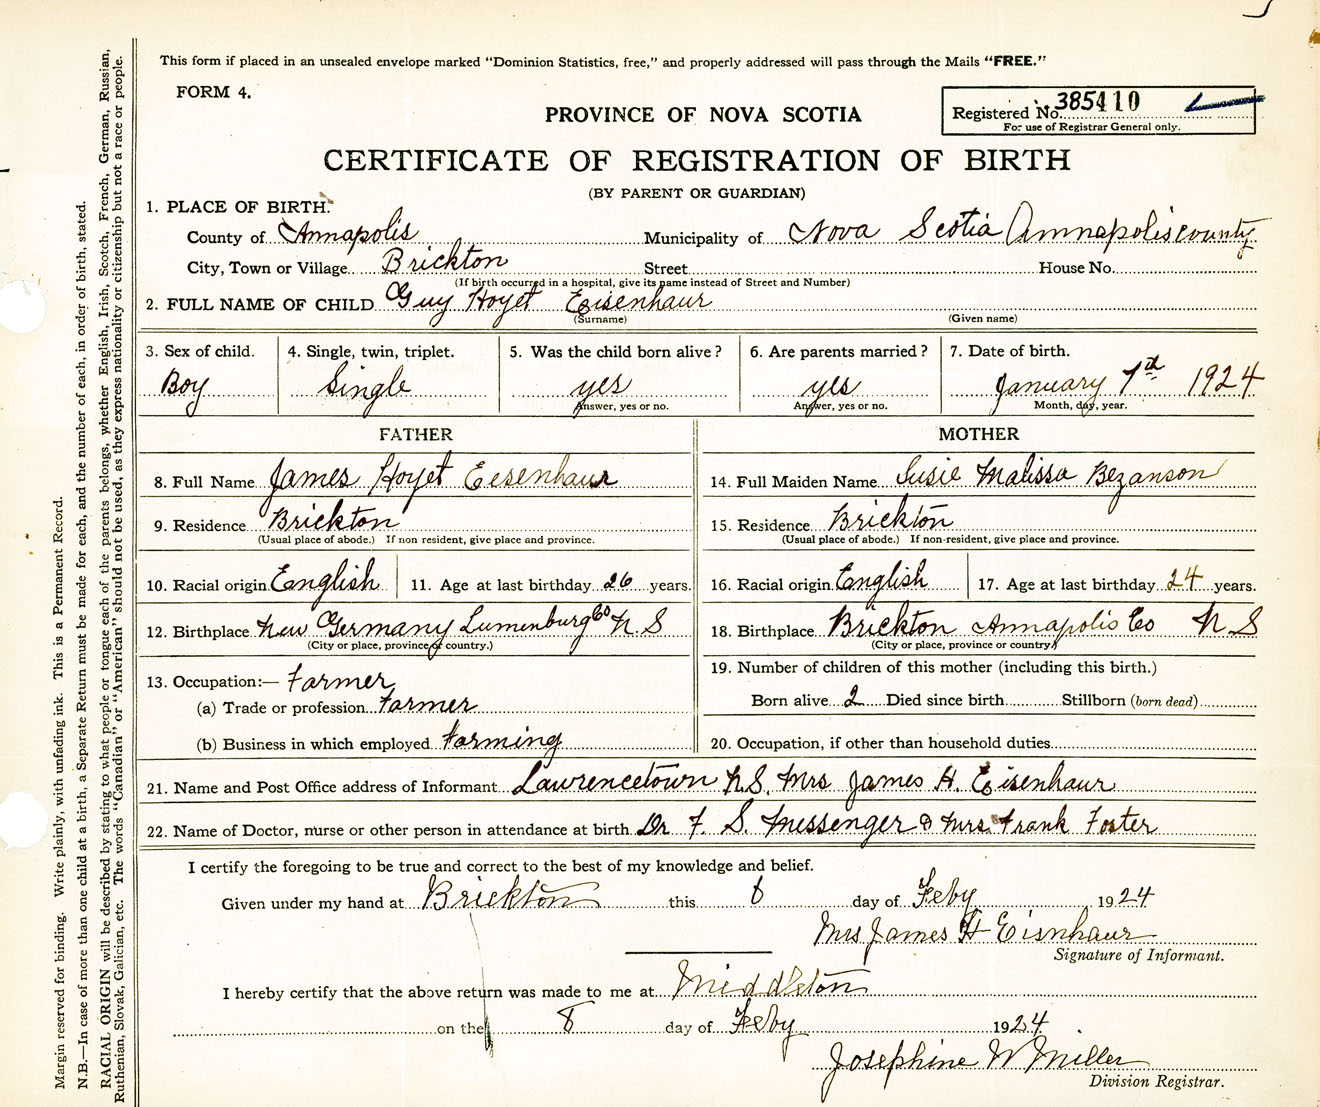 This form if placed in an unsealed envelope marked "Dominion Statistics, free," and properly addressed will pass through the Mails "FREE."
FORM 4.
PROVINCE OF NOVA SCOTIA
Registered No. 385410
For use of Registrar General only.
CERTIFICATE OF REGISTRATION OF BIRTH
(BY PARENT OR GUARDIAN)
1. PLACE OF BIRTH.
County of Annapolis Municipality of Nova Scotia Annapolis county
City, Town or Village Brickton Street House No.
(If birth occurred in a hospital, give its name instead of Street and Number)
2. FULL NAME OF CHILD Guy Hoyet Eisenhaur
(Surname) (Given name)
3. Sex of child. 4. Single, twin, triplet. 5. Was the child born alive? 6. Are parents married? 7. Date of birth.
Boy Single yes yes January 7th 1924
Answer, yes or no. Answer, yes or no. Month, day, year.
FATHER MOTHER
8. Full Name James Hoyet Eesenhaur 14. Full Maiden Name Susie Malissa Bezanson
9. Residence Brickton 15. Residence Brickton
(Usual place of abode.) If non resident, give place and province. (Usual place of abode.) If non-resident, give place and province.
10. Racial origin English 11. Age at last birthday 26 years. 16. Racial origin English 17. Age at last birthday 24 years.
12. Birthplace New Germany Lumenburg Co N.S 18. Birthplace Brickton Annapolis Co N S
(City or place, province or country.) (City or place, province or country)
13. Occupation:— Farmer 19. Number of children of this mother (including this birth.)
(a) Trade or profession Farmer Born alive 2 Died since birth Stillborn (born dead)
(b) Business in which employed Farming 20. Occupation, if other than household duties
21. Name and Post Office address of Informant Lawrencetown N.S. Mrs James H. Eisenhaur
22. Name of Doctor, nurse or other person in attendance at birth Dr F. S. Messenger & Mrs. Frank Foster
I certify the foregoing to be true and correct to the best of my knowledge and belief.
Given under my hand at Brickton this 6 day of Feby 1924
Mrs James H Eisnhaur
Signature of Informant.
I hereby certify that the above return was made to me at Middleton
on the 8 day of Feby 1924
Josephine W Miller
Division Registrar.
Margin reserved for binding. Write plainly, with unfading ink. This is a Permanent Record.
N.B.—In case of more than one child at a birth, a Separate Return must be made for each, and the number of each, in order of birth, stated.
RACIAL ORIGIN will be described by stating to what people or tongue each of the parents belongs, whether English, Irish, Scotch, French, German, Russian,
Ruthenian, Slovak, Galician, etc. The words "Canadian" or "American" should not be used, as they express nationality or citizenship but not a race or people.